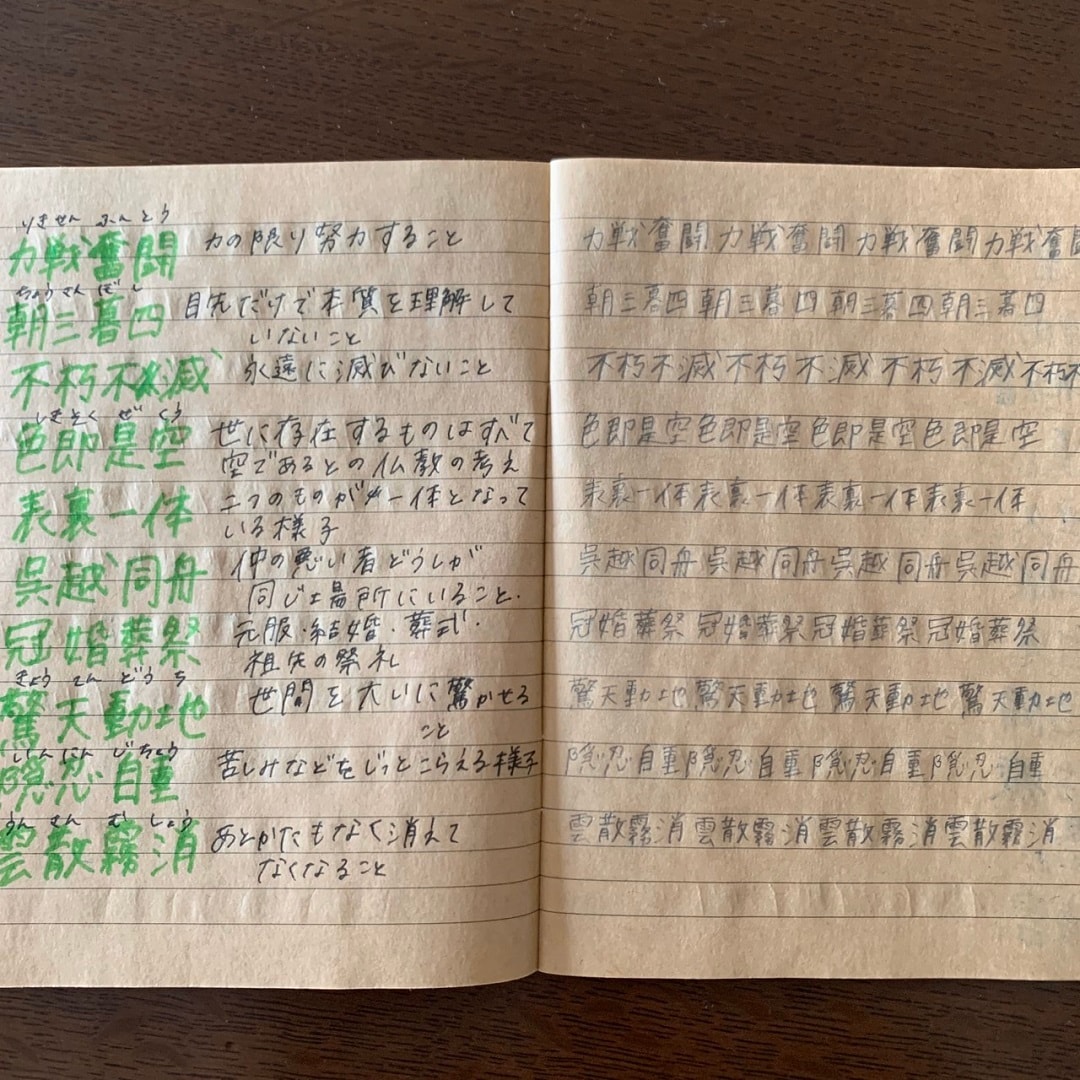 りきせん ふんとう
力戦奮闘 力の限り努力すること
ちょうさん ぼし
朝三暮四 目先だけで本質を理解して
いないこと
不朽不滅 永遠に滅びないこと
しきそく ぜ くう
色即是空 世に存在するものはすべて
空であるとの仏教の考え
表裏一体 二つのものが一体となって
いる様子
呉越同舟 仲の悪い者どうしが
同じ場所にいること.
冠婚葬祭 元服・結婚・葬式・
祖先の祭礼
きょう てん どう ち
驚天動地 世間を大いに驚かせる
こと
いんにん じちょう
隠忍自重 苦しみなどをじっとこらえる様子
うん さん む しょう
雲散霧消 あとかたもなく消えて
なくなること
力戦奮闘 力戦奮闘 力戦奮闘 力戦奮闘
朝三暮四 朝三暮四 朝三暮四 朝三暮四
不朽不滅 不朽不滅 不朽不滅 不朽不
色即是空 色即是空 色即是空 色即是空
表裏一体 表裏一体 表裏一体 表裏一体
呉越同舟 呉越同舟 呉越同舟 呉越同舟
冠婚葬祭 冠婚葬祭 冠婚葬祭 冠婚葬祭
驚天動地 驚天動地 驚天動地 驚天動地
隠忍自重 隠忍自重 隠忍自重 隠忍自重
雲散霧消 雲散霧消 雲散霧消 雲散霧消